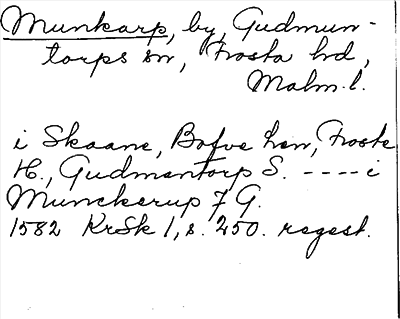 Munkarp, by, Gudmun-
torps sn, Frosta hd,
Malm. l.
i Skaane, Bosve len, Froste
H., Gudmentorp S. ---- i
Munckerup 7 G.
1582 KrSk 1, s. 250. regest.